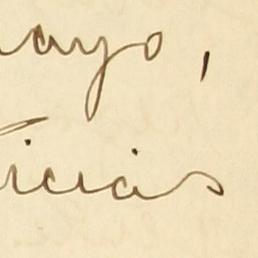 mayo,
ticias